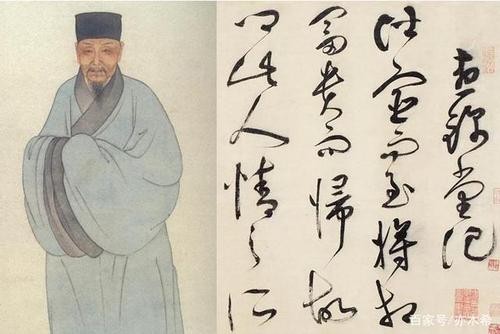 晝錦堂記
仕宦而至將相
富貴而歸故
鄉此人情之所
百家号/亦木希